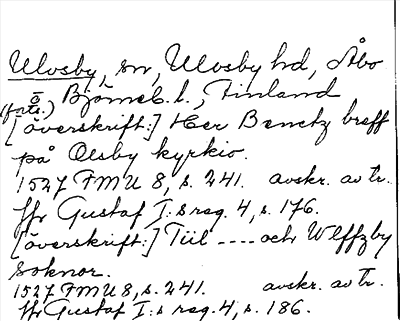 Ulvsby, sn, Ulvsby hd, Åbo
o. Björneb. l., Finland
(forts.)
[överskrift:] Her Benctz breff
på Olsby kyrkio.
1527 FMU 8, s. 241. avskr. av tr.
ffr Gustaf I:s reg. 4, s. 176.
[överskrift:] Tiil .... och Wlffzby
soknor.
1527 FMU 8, s. 241. avskr. av tr.
ffr Gustaf I:s reg. 4, s. 186.